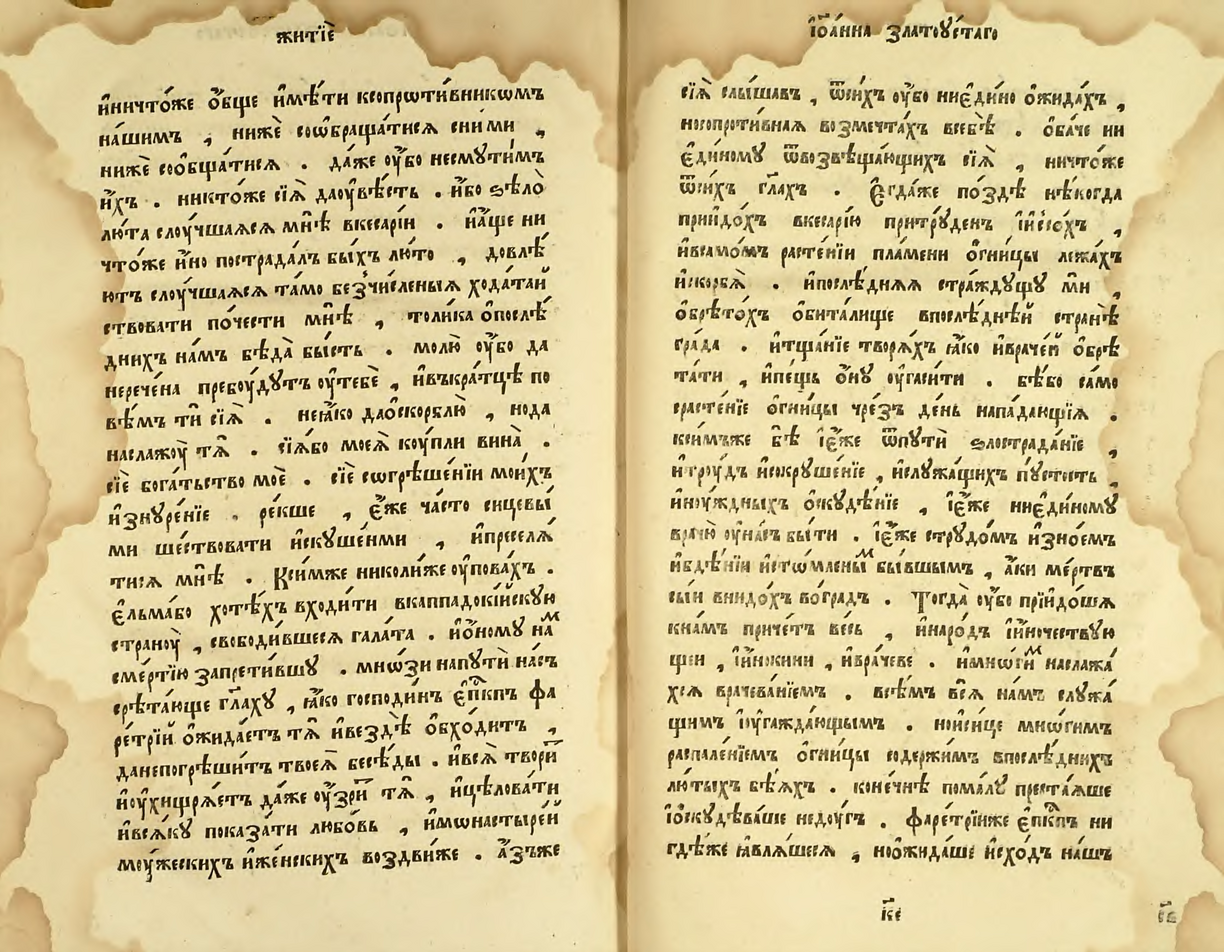 житїѐ
и҆ничто́же о҆́бще и҆мѣ́ти ксопрѡти́вникѡмъ
на́шимъ , нижѐ соѡбраща́тисѧ сни́ми ,
нижѐ соѻ҆бща́тисѧ . да́же оу҆̀бо несмути́мъ
и҆́хъ . никто́же сїѧ̀ даоу҆вѣ́сть . и҆́бо ѕѣлѡ̀
лю́та слоу́чшаѧсѧ мнѣ̀ вкесарі́и . и҆а҆́ще ни
что́же и҆́но пострада́лъ бы́хъ лю́то , довлѣ́
ютъ слоу́чшаѧсѧ та́мо безчи́сленыѧ хода́таи
ствовати по́чести мнѣ̀ , толи́ка о҆послѣ́
днихъ на́мъ бѣда̀ бы́сть . молю̀ оу҆̀бо да
неречена̀ пребоу́дутъ оу҆тебѐ , и҆въкра́тцѣ по
вѣ́мъ ти сїѧ̀ . неꙗ҆́ко дао҆скорблю̀ , нода
наслажоу̀ тѧ̀ . сїѧ́бо моеѧ̀ коу́пли вина̀ .
сїѐ бога́тьство моѐ . сїѐ сѡгрѣше́нїи мои́хъ
и҆знꙋре́нїе . ре́кше , є҆́же ча́сто сицевы́
ми ше́ствовати и҆скуше́нми , и҆преселѧ́
тисѧ мнѣ̀ . Кси́мже николи́же оу҆пова́хъ .
є҆льма́бо хотѣ́хъ входи́ти вкаппадокі́йскую
страноу̀ , свободи́вшесѧ гала́та . и҆о҆́ному наⷨ
сме́ртїю запрети́вшꙋ . мнѡ́зи напути́ на́съ
срѣта́юще гл҃ахꙋ , ꙗ҆́ко господи́нъ є҆пⷭ҇кпъ фа
ре́трїй о҆жида́етъ тѧ̀ и҆вездѐ о҆бхо́дитъ ,
данепогрѣши́тъ твоеѧ̀ бесе́ды . и҆всѧ̀ твори́ⷮ
и҆оу҆хищрѧ́етъ да́же оу҆́зриⷮ тѧ̀ , и҆цѣлова́ти
и҆всѧ́кꙋ показа́ти любо́вь , и҆мѡнастыре́й
моу́жескихъ и҆же́нскихъ воздви́же . а҆́зъже
і҆ѡа́нна златоꙋ́стаго
сїѧ̀ слы́шавъ , ѿси́хъ оу҆́бо ниеди́но о҆жида́хъ ,
носопроти́внаѧ возмечта́хъ всебѣ̀ . о҆ба́че ни
є҆ди́номꙋ ѿвозвѣща́ющихъ сїѧ̀ , ничто́же
ѿси́хъ гл҃ахъ . Є҆гда́же по́здѣ нѣ́когда
прїидо́хъ вкесарі́ю притрꙋ́денъ і҆и҆ссо́хъ ,
и҆всамо́мъ расте́нїи пла́мени о҆гни́цы лежа́хъ
и҆скорбѧ̀ . и҆послѣ́днѧѧ стра́ждꙋщꙋ ми ,
о҆брѣто́хъ о҆бита́лище впослѣ́днѣй странѣ̀
гра́да . и҆тща́нїе творѧ́хъ ꙗ҆́ко и҆враче́й о҆брѣ
та́ти , и҆пе́щь о҆́нꙋ оу҆гаси́ти . бѣ́бо са́мо
срасте́нїе о҆гни́цы чре́зъ де́нь напа́дающїѧ .
кси́мъже бѣ̀ і҆є҆́же ѿпути̂ ѕлострада́нїе ,
и҆трꙋ́дъ и҆сокрꙋше́нїе , и҆слꙋжа́щихъ пꙋстость ,
и҆ноу́ждныхъ о҆скꙋде́нїе , і҆є҆́же ниеди́номꙋ
врачю̀ оу҆на́съ бы́ти . і҆є҆́же стрꙋдо́мъ и҆зно́емъ
и҆бдѣ́нїи и҆стѡмлены́ⷨ бы́вшымъ , а҆́ки ме́ртвъ
сы́и внидо́хъ во́градъ . Тогда̀ оу҆́бо прїидо́шѧ
кна́мъ приче́тъ весь , и҆наро́дъ і҆и҆ночествую
щеи , і҆и҆нокини , и҆врачеве . и҆мно́гиⷨ наслажа́
хсѧ врачева́нїемъ . всѣ́мъ всѧ̀ на́мъ слꙋжа́
щимъ і҆оу҆гажда́ющымъ . нои҆си́це мно́гимъ
распале́нїемъ о҆гни́цы содержи́мъ впослѣ́днихъ
лю́тыхъ бѣ́ѧхъ . коне́чнѣ пома́лꙋ преста́ѧше
і҆о҆скꙋдѣва́ше недоу́гъ . фаре́трїиже є҆пⷭ҇кпъ ни
гдѣ́же ꙗ҆влѧ́шесѧ , ноо҆жида́ше и҆схо́дъ на́шъ
к҃е